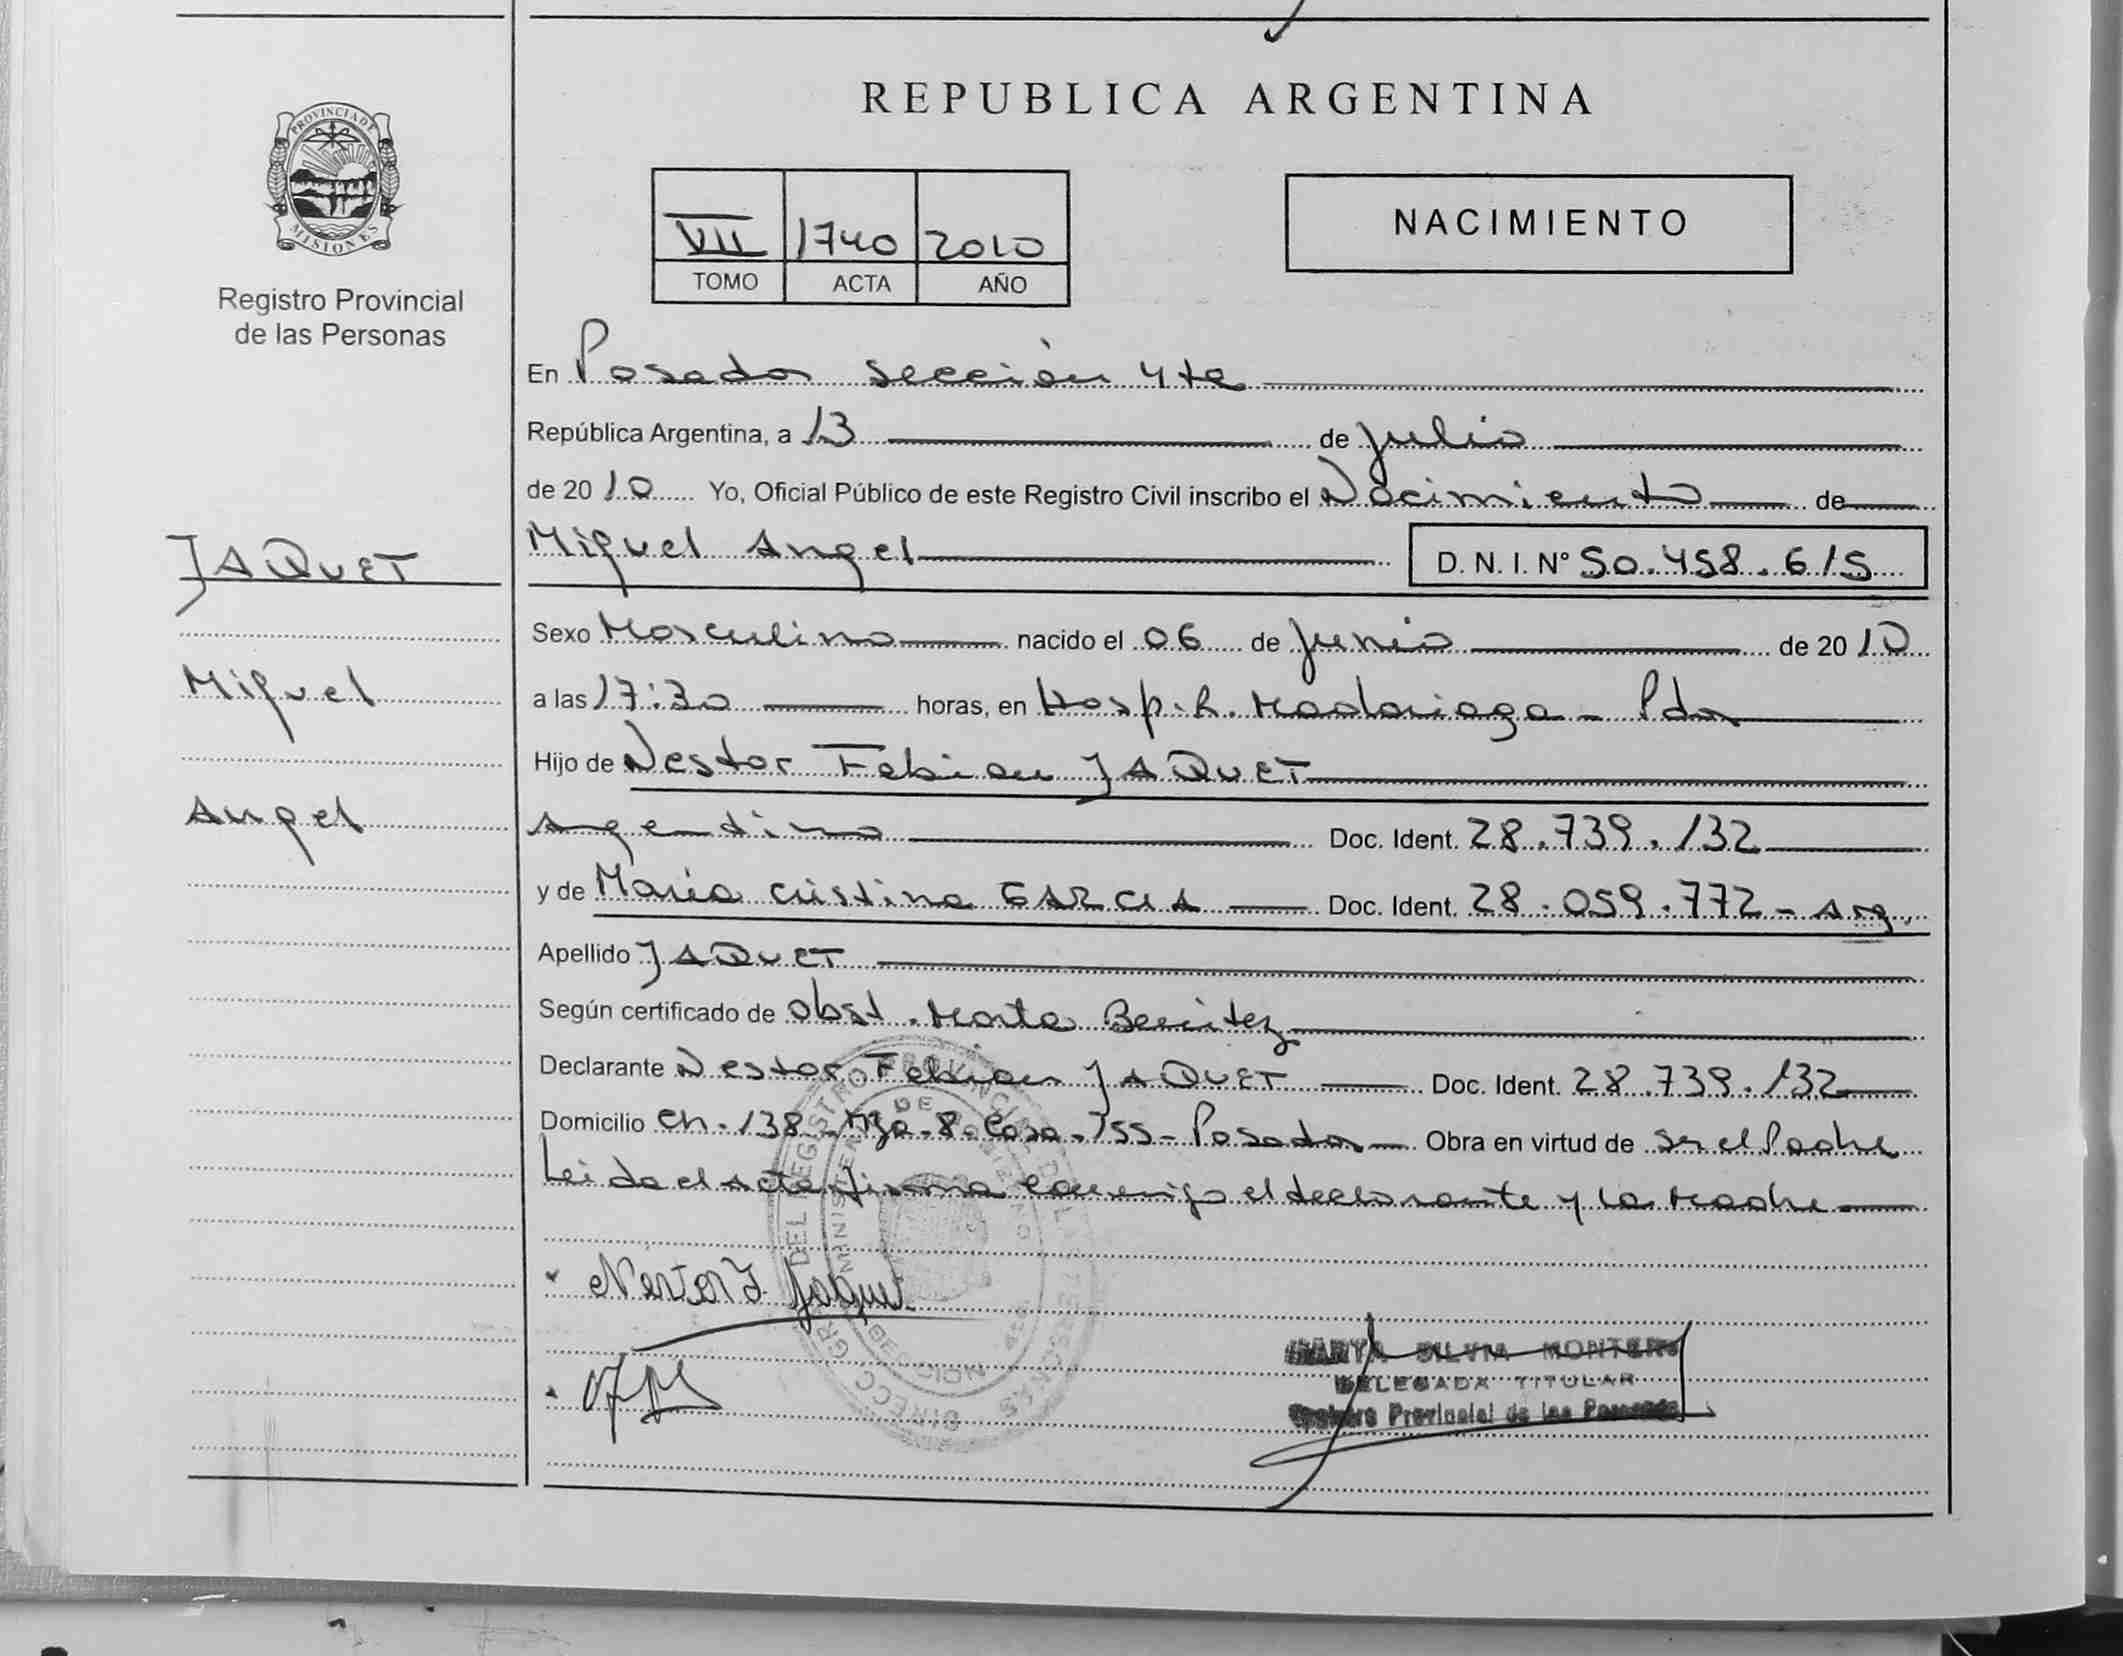 PROVINCIA DE
MISIONES
Registro Provincial
de las Personas
JAQUET
Miguel
Angel
REPUBLICA ARGENTINA
VII 1740 2010
TOMO ACTA AÑO
NACIMIENTO
En Posadas sección 4ta
República Argentina, a 13 de julio
de 2010 Yo, Oficial Público de este Registro Civil inscribo el Nacimiento de
Miguel Angel D. N. I. Nº 50.458.615
Sexo Masculino nacido el 06 de junio de 2010
a las 17:30 horas, en Hosp. R. Madariaga - Pdas
Hijo de Nestor Fabian JAQUET
Argentino Doc. Ident. 28.739.132
y de María Cristina GARCIA Doc. Ident. 28.059.772 - Arg.
Apellido JAQUET
Según certificado de Obst. Marta Benitez
Declarante Nestor Fabian JAQUET Doc. Ident. 28.739.132
Domicilio Ch. 138 - Mza - 8 - Casa - 755 - Posadas Obra en virtud de ser el Padre
Leida el acta firma conmigo el declarante y la Madre
Nestor F. Jaquet
SILVIA MONTERO
DELEGADA TITULAR
Registro Provincial de las Personas